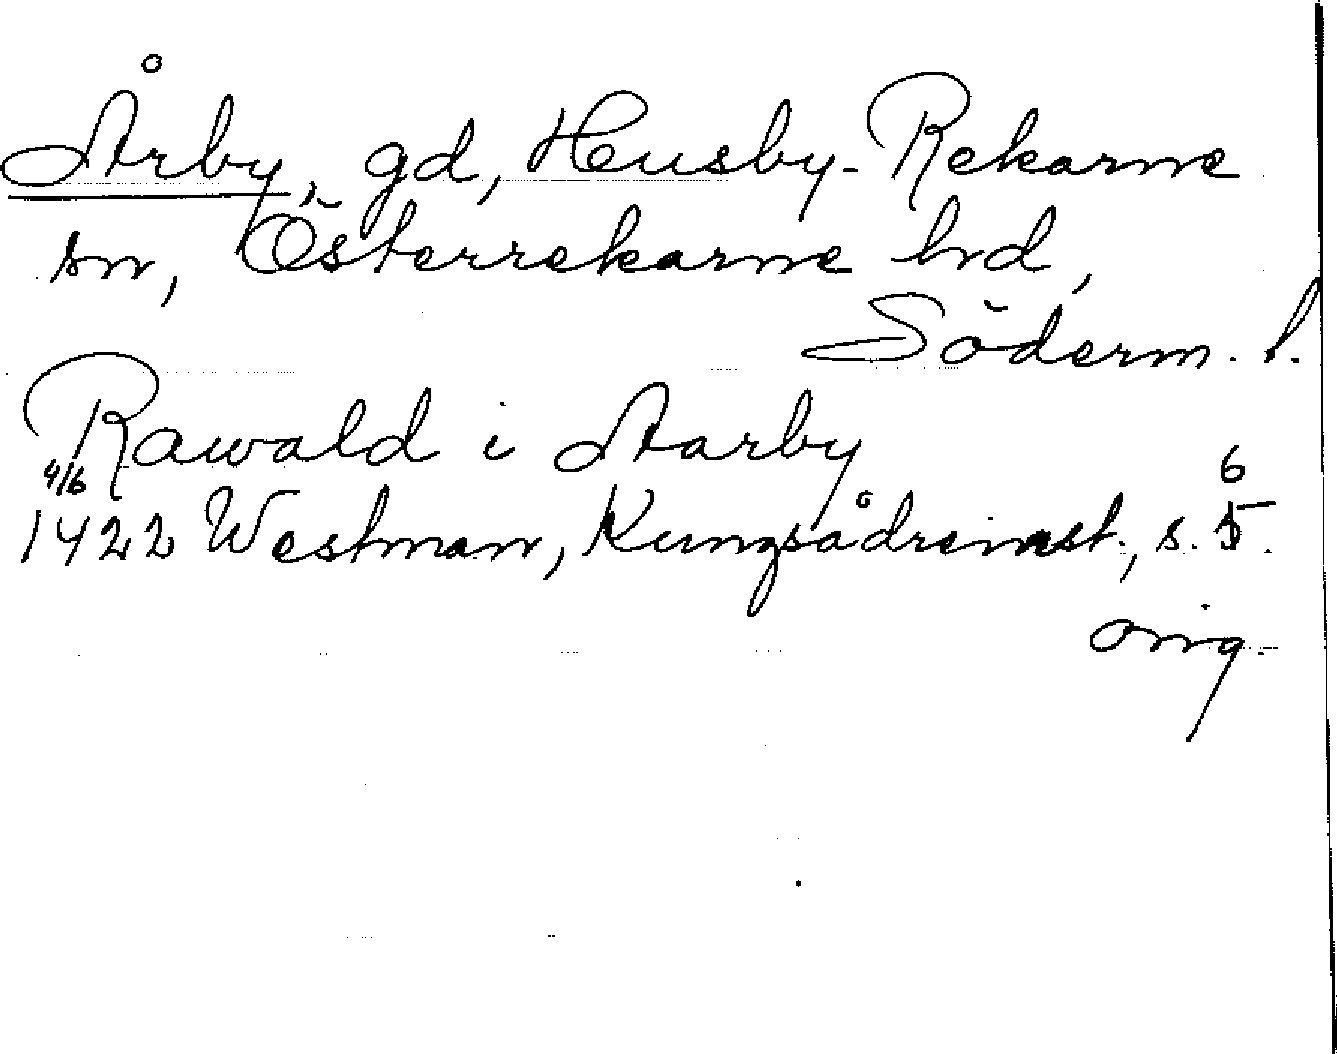 Årby, gd, Husby-Rekarne
sn, Österrekarne hd,
Söderm. l.
Rawald i Aarby
4/6
6
1422 Westman, Kungsådreinst., s. 5.
orig.